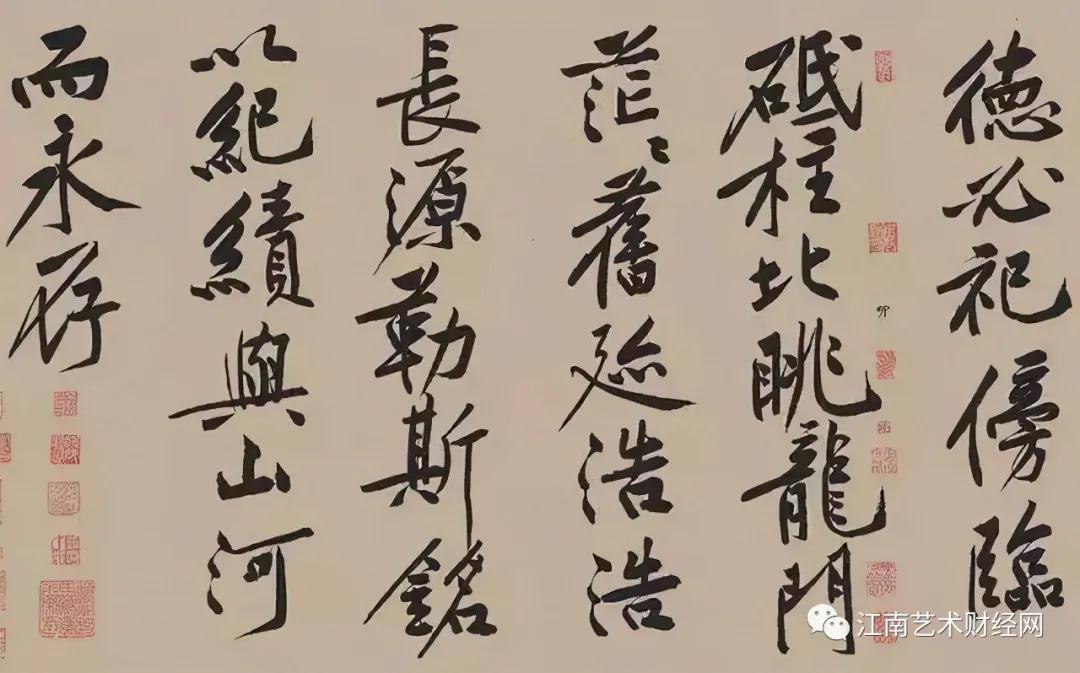 德必祀傍臨
砥柱北眺龍門
茫〻舊迹浩浩
長源勒斯銘
以紀績與山河
而永存
江南艺术财经网